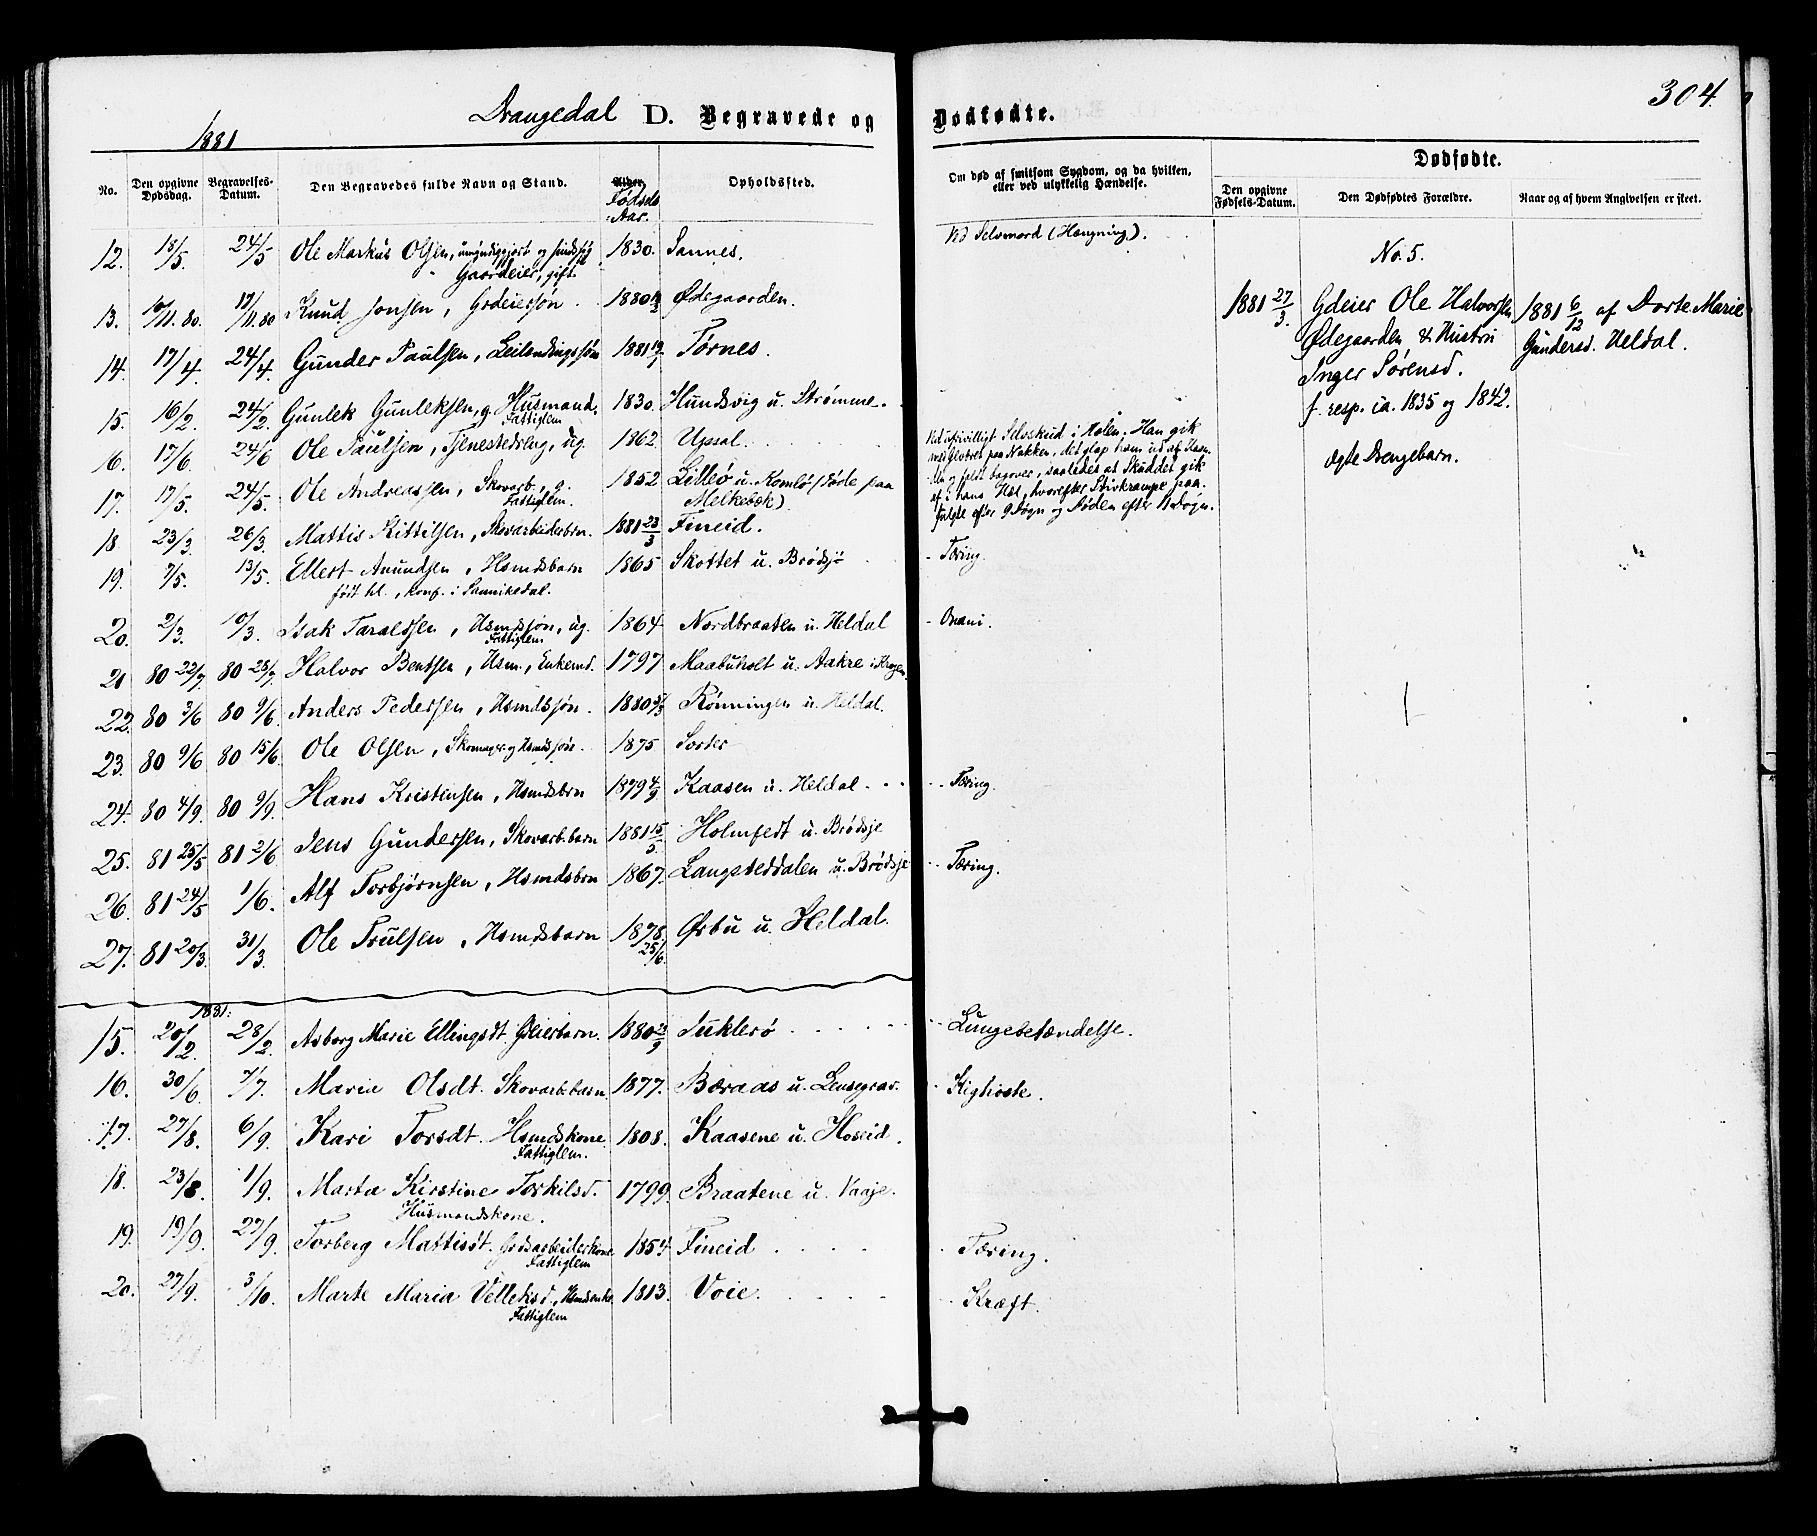 304.
Drangedal D. Begravede og Dødfødte.
1881
No. Den opgivne Dødsdag. Begravelses-Datum. Den Begravedes fulde Navn og Stand. Alder. Fødsels Aar. Opholdssted. Om død af smitsom Sygdom, og da hvilken, eller ved ulykkelig Hændelse. Dødfødte. Den opgivne Fødsels-Datum. Den Dødfødtes Forældre. Naar og af hvem Angivelsen er skeet.
12. 18/5. 24/5 Ole Markus Olsen, umyndiggjort og sindssyg 1830. Sannes. Ved Selvmord (Hængning).
Gaardeier, gift.
13. 10/11. 80. 17/11. 80 Knud Jonsen, Grdeiersøn. 1880 Ødegaarden.
14. 17/4. 24/4. Gunder Paulsen, Leilendingssøn 1881 Tørnes.
15. 16/2. 24/2. Gunlek Gunleksen, g. Husmand. 1830. Hundsvig u. Strømme.
Fattiglem
16. 17/6. 24/6 Ole Paulsen, Tjenestedreng, ug. 1862. Upsal.
17. 17/5. 24/5. Ole Andreassen, Skovarb., g. 1852 Lillø u. Komlø (døde paa
Fattiglem. Melkebæk).
Ved ufrivilligt Selvskud i Hælen. Han gik
med Geværet paa Nakken, det slap ham ud af Haan-
den og faldt bagover, saaledes at Skuddet gik
af i hans Hæl, hvorefter Stivkrampe paa-
fulgte efter 9 Døgn og Døden efter 11 Døgn.
18 23/3. 26/3. Mattis Kittilsen, Skovarbeiderbrn. 1881 23/3 Fineid.
19. 7/5. 13/5. Ellert Anundsen, Hsmdsbarn 1865 Skottet u. Brødsjø - Tæring.
født hl., konf. i Sannikedal.
20. 2/3. 10/3. Isak Taraldsen, Hsmdsøn, ug. 1864 Nordbraaten u. Heldal - Onani.
Fattiglem
21 80 22/7 80 28/7. Halvor Bentsen, Hsm., Enkemd. 1797 Maabuholt u. Aakre i Kragerø.
22. 80 3/6 80 9/6. Anders Pedersen, Hsmdssøn. 1880 Rønningen u. Heldal.
23. 80 9/6 80 15/6. Ole Olsen, Skomager. og Hsmdssøn. 1875 Sorter
24. 80 4/9. 80 9/9. Hans Kristensen, Hsmdsbrn 1879 4/9. Kaasen u. Heldal. Tæring.
25. 81 25/5 81 2/6 Jens Gundersen, Skovarb.barn 1881 15/5. Holmfedt u. Brødsje
26. 81 24/5 1/6. Alf Torbjørnsen, Hsmdsbrn 1867. Langsteddalen u. Brødsje Tæring.
27. 81 20/3. 31/3. Ole Trulsen, Hsmdsbarn 1878. 25/6. Ørbu u. Heldal.
1881 27/3. No. 5.
Gdeier Ole Halvorsen
Ødegaarden & Hustru
Inger Sørensd.
f. resp. ca. 1835 og 1842.
ægte Drengebarn.
1881 6/12 af Dorte Marie
Gundersd. Heldal.
1881.
15. 20/2. 28/2. Asborg Marie Ellingsdt. Gdeierbarn. 1880 2/9 Suklerø Lungebetændelse.
16. 30/6. 7/7. Maria Olsdt. Skovarb.barn. 1877. Bæraas u. Lensegrav. Kighoste.
17. 27/8. 6/9. Kari Torsdt. Hsmdskone. 1808. Kaasene u. Hoseid.
Fattiglem.
18. 23/8. 1/9. Marta Kirstine Torkilsd. 1799. Braatene u. Vaaje.
Husmandskone.
19. 19/9. 27/9. Torberg Mattisdt. Grdsarbeiderkone 1854 Fineid Tæring.
Fattiglem
20. 27/9. 3/10. Marte Maria Velleksd., Hsmdsenke. 1813. Voie. Kræft.
Fattiglem